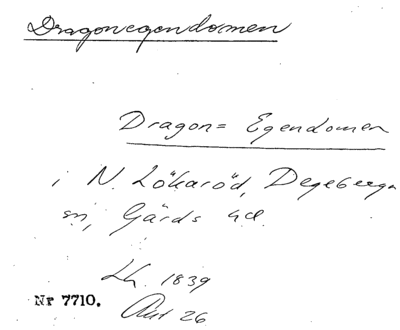 Dragonegendomen
Dragon= Egendomen
i N. Lökaröd, Degeberga
sn, Gärds hd.
Lh. 1839
Nr 7710.
Akt 26